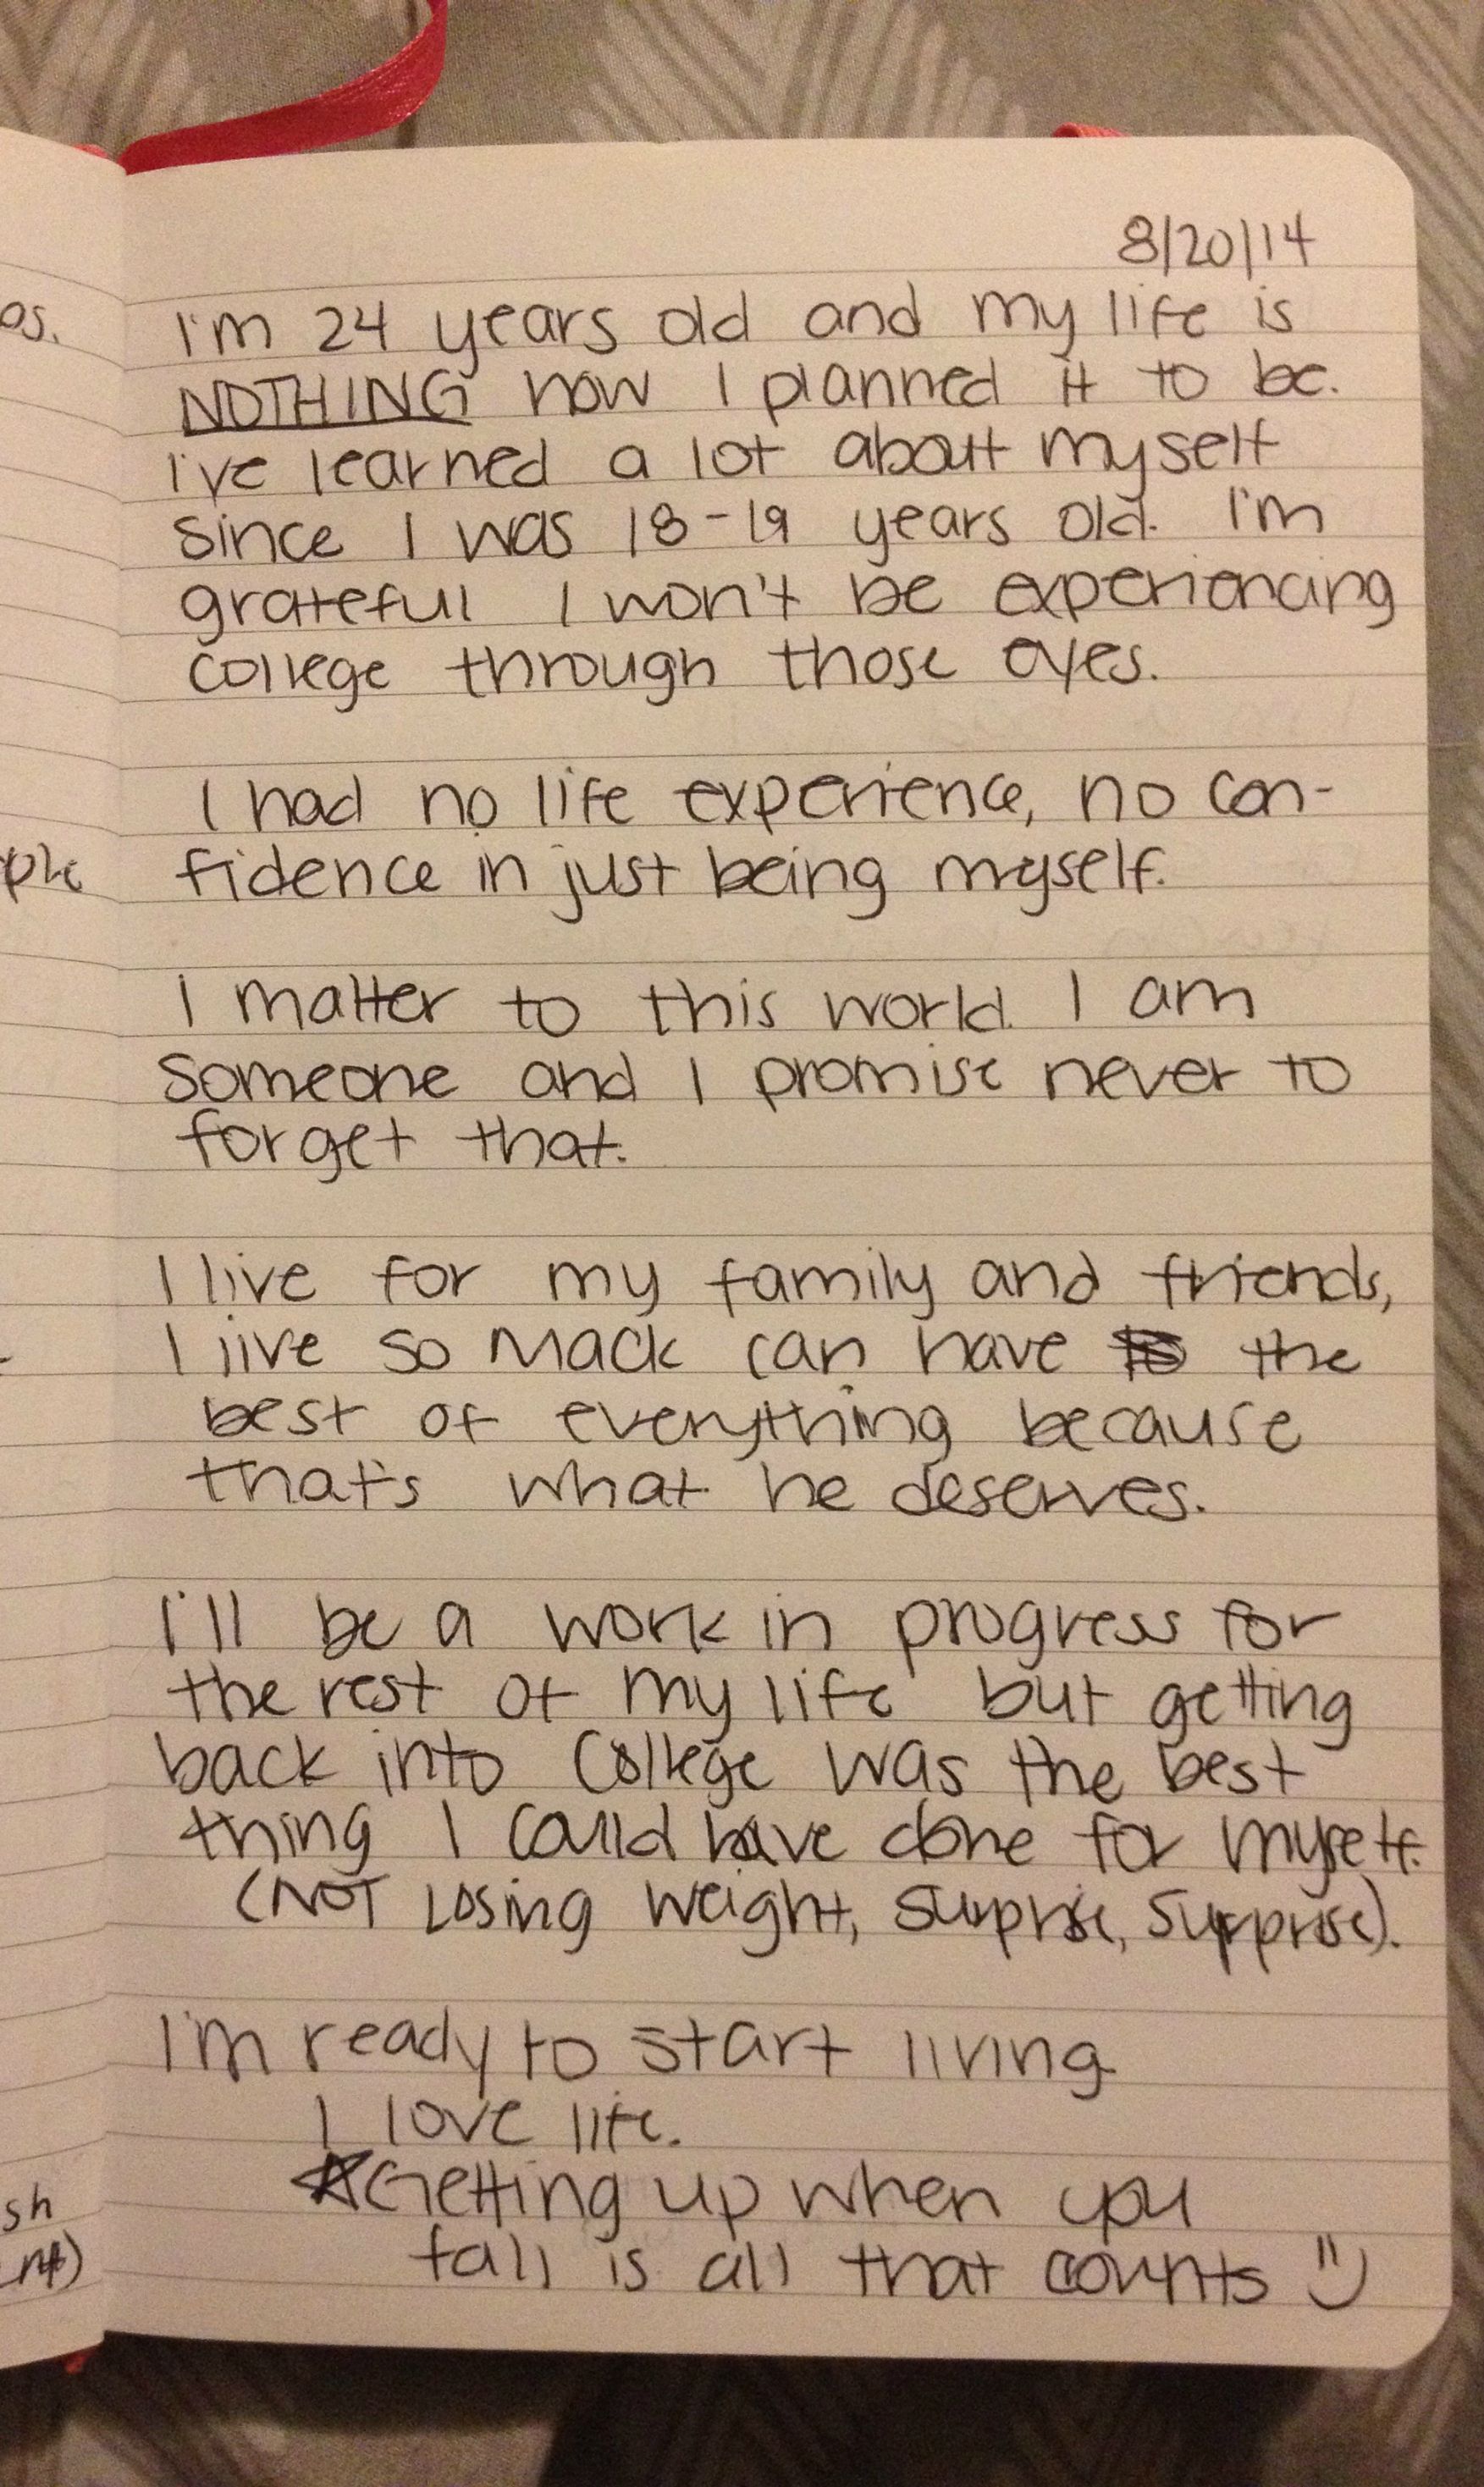 8/20/14
I'm 24 years old and my life is
NOTHING how I planned it to be.
I've learned a lot about myself
since I was 18-19 years old. I'm
grateful I won't be experiencing
college through those eyes.
I had no life experience, no con-
fidence in just being myself.
I matter to this world. I am
someone and I promise never to
forget that.
I live for my family and friends,
I live so Mack can have the
best of everything because
that's what he deserves.
I'll be a work in progress for
the rest of my life but getting
back into college was the best
thing I could have done for myself.
(NOT Losing weight, surprise, surprise).
I'm ready to start living
I love life.
☆Getting up when you
fall is all that counts :)
os.
ple
sh
nt)